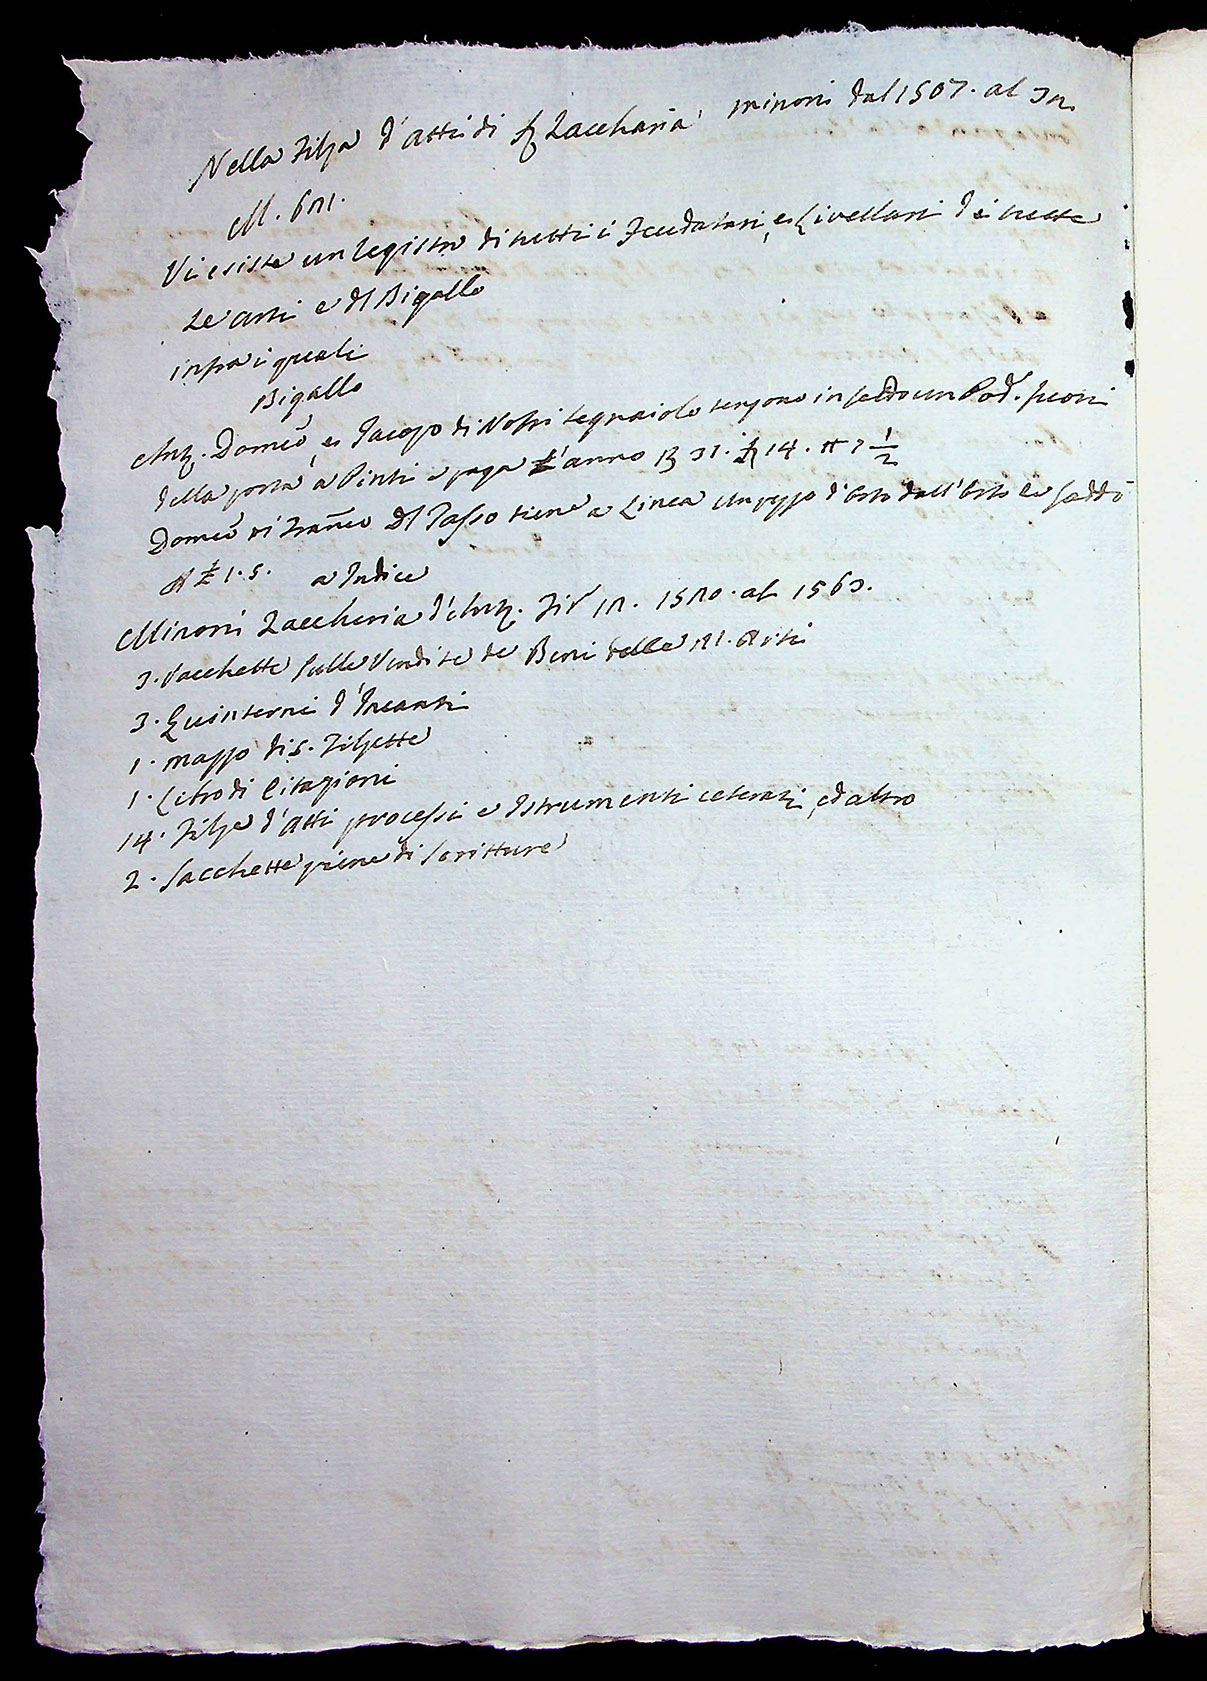 Nella Filza d'atti di Ser Zaccharia Minori dal 1507. al
M. 6
Vi esiste un Registro di tutti i Feudatari, e Livellari di tutte
Le Arti e del Bigallo
infra i quali
Bigallo
Domco, e Jacopo di legnaiolo tengono in un Pod. fuori
della porta a Pinti e paga l'anno 14. 7 1/2
Domco di Franco del Tasso tiene a Linea un pezzo d'orto dall'Orto
1.5. a Indice
Minori Zaccheria d'Ant. al 1563.
3. Vacchette sulle Vendite de Beni delle Arti
3. Quinterni d'Incanti
1. mazzo di 5. Filzette
1. Libro di Citazioni
14. Filze d'Atti processi e Istrumenti ceterati, ed altro
2. Sacchette piene di Scritture